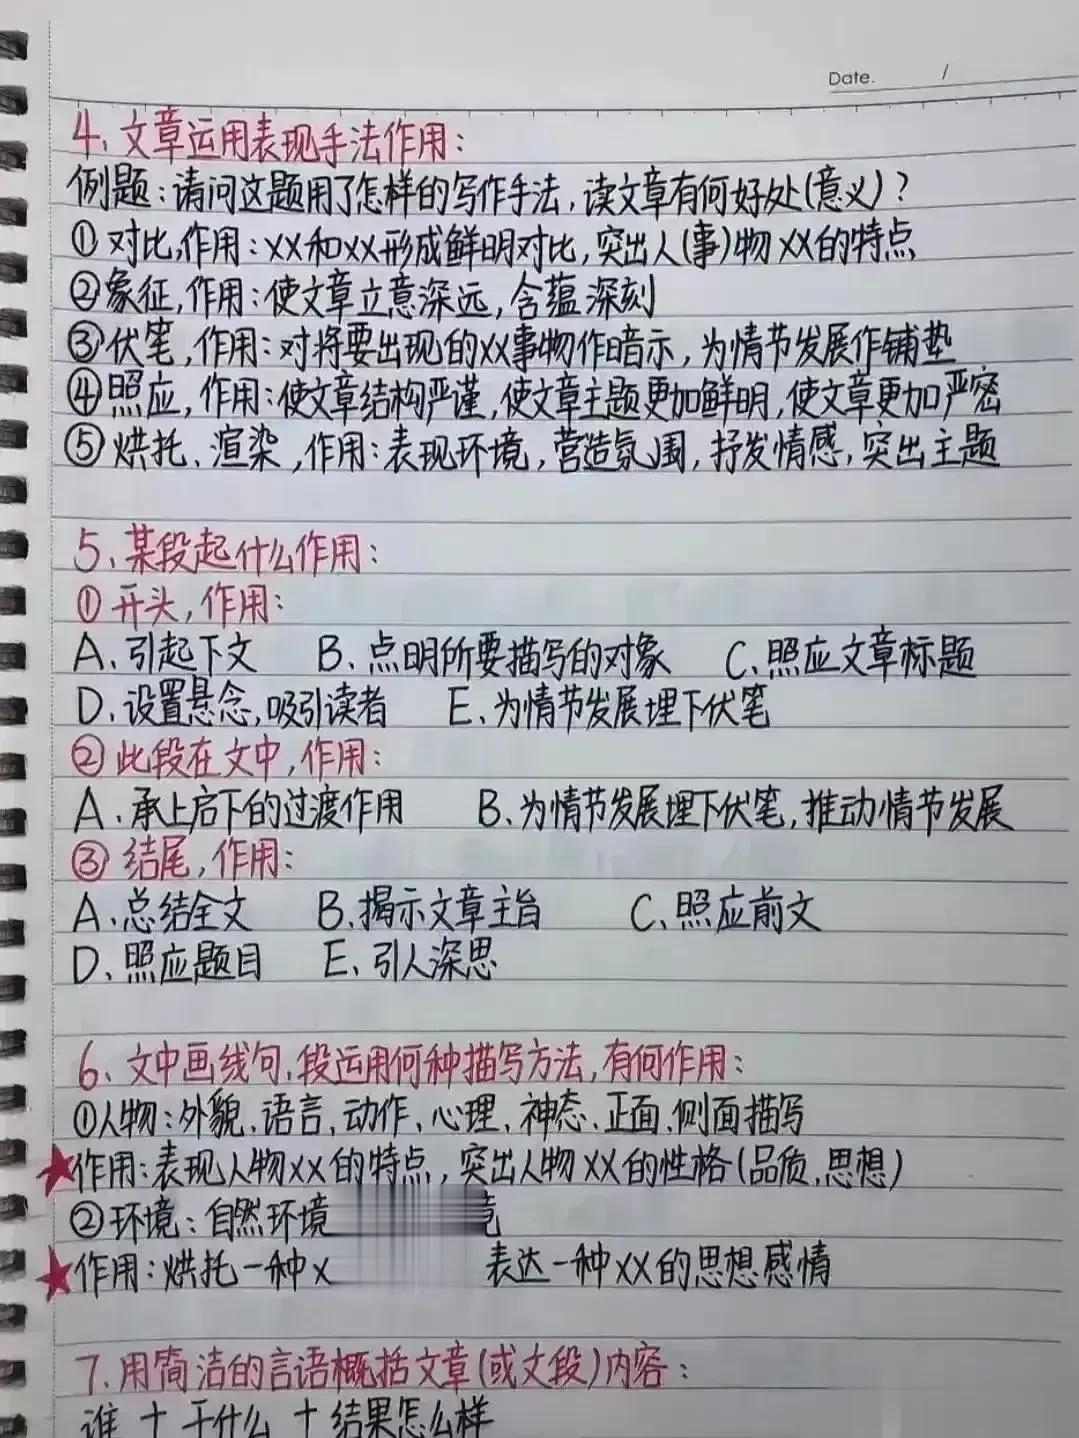 Date. /
4、文章运用表现手法作用：
例题：请问这题用了怎样的写作手法，读文章有何好处(意义)？
①对比，作用：XX和XX形成鲜明对比，突出人(事)物XX的特点
②象征，作用：使文章立意深远，含蕴深刻
③伏笔，作用：对将要出现的XX事物作暗示，为情节发展作铺垫
④照应，作用：使文章结构严谨，使文章主题更加鲜明，使文章更加严密
⑤烘托、渲染，作用：表现环境，营造氛围，抒发情感，突出主题
5、某段起什么作用：
①开头，作用：
A、引起下文 B、点明所要描写的对象 C、照应文章标题
D、设置悬念，吸引读者 E、为情节发展埋下伏笔
②此段在文中，作用：
A、承上启下的过渡作用 B、为情节发展埋下伏笔，推动情节发展
③结尾，作用：
A、总结全文 B、揭示文章主旨 C、照应前文
D、照应题目 E、引人深思
6、文中画线句、段运用何种描写方法，有何作用：
①人物：外貌、语言、动作、心理、神态、正面、侧面描写
★作用：表现人物XX的特点，突出人物XX的性格(品质、思想)
②环境：自然环境
★作用：烘托一种X 表达一种XX的思想感情
7、用简洁的言语概括文章(或文段)内容：
谁＋干什么＋结果怎么样